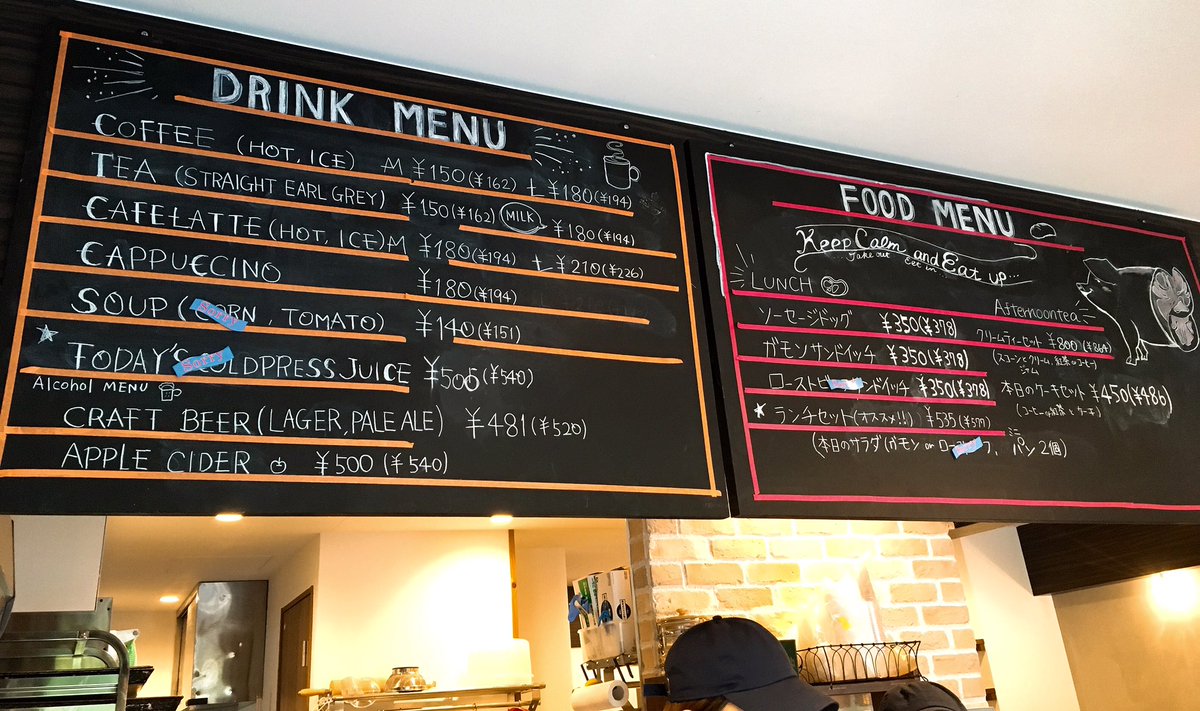 DRINK MENU
COFFEE (HOT, ICE) M ¥150(¥162) L ¥180(¥194)
TEA (STRAIGHT EARL GREY) ¥150(¥162) MILK ¥180(¥194)
CAFELATTE (HOT, ICE) M ¥180(¥194) L ¥210(¥226)
CAPPUCCINO ¥180(¥194)
SOUP (CORN, TOMATO) ¥140(¥151)
Sorry
TODAY'S COLDPRESS JUICE ¥505(¥540)
Sorry
Alcohol MENU
CRAFT BEER (LAGER, PALE ALE) ¥481(¥520)
APPLE CIDER ¥500 (¥540)
FOOD MENU
Keep Calm and Eat up...
Take out Eat in...
LUNCH
ソーセージドッグ ¥350(¥378)
ガモンサンドイッチ ¥350(¥378)
ローストビ ンドイッチ ¥350(¥378)
ランチセット(オススメ!!) ¥535(¥577)
(本日のサラダ(ガモン or ロー フ、ミニパン2個)
Afternoontea
クリームティーセット ¥800(¥864)
(スコーンとクリーム、紅茶orコーヒー)
ジャム
本日のケーキセット ¥450(¥486)
(コーヒーor紅茶とケーキ)